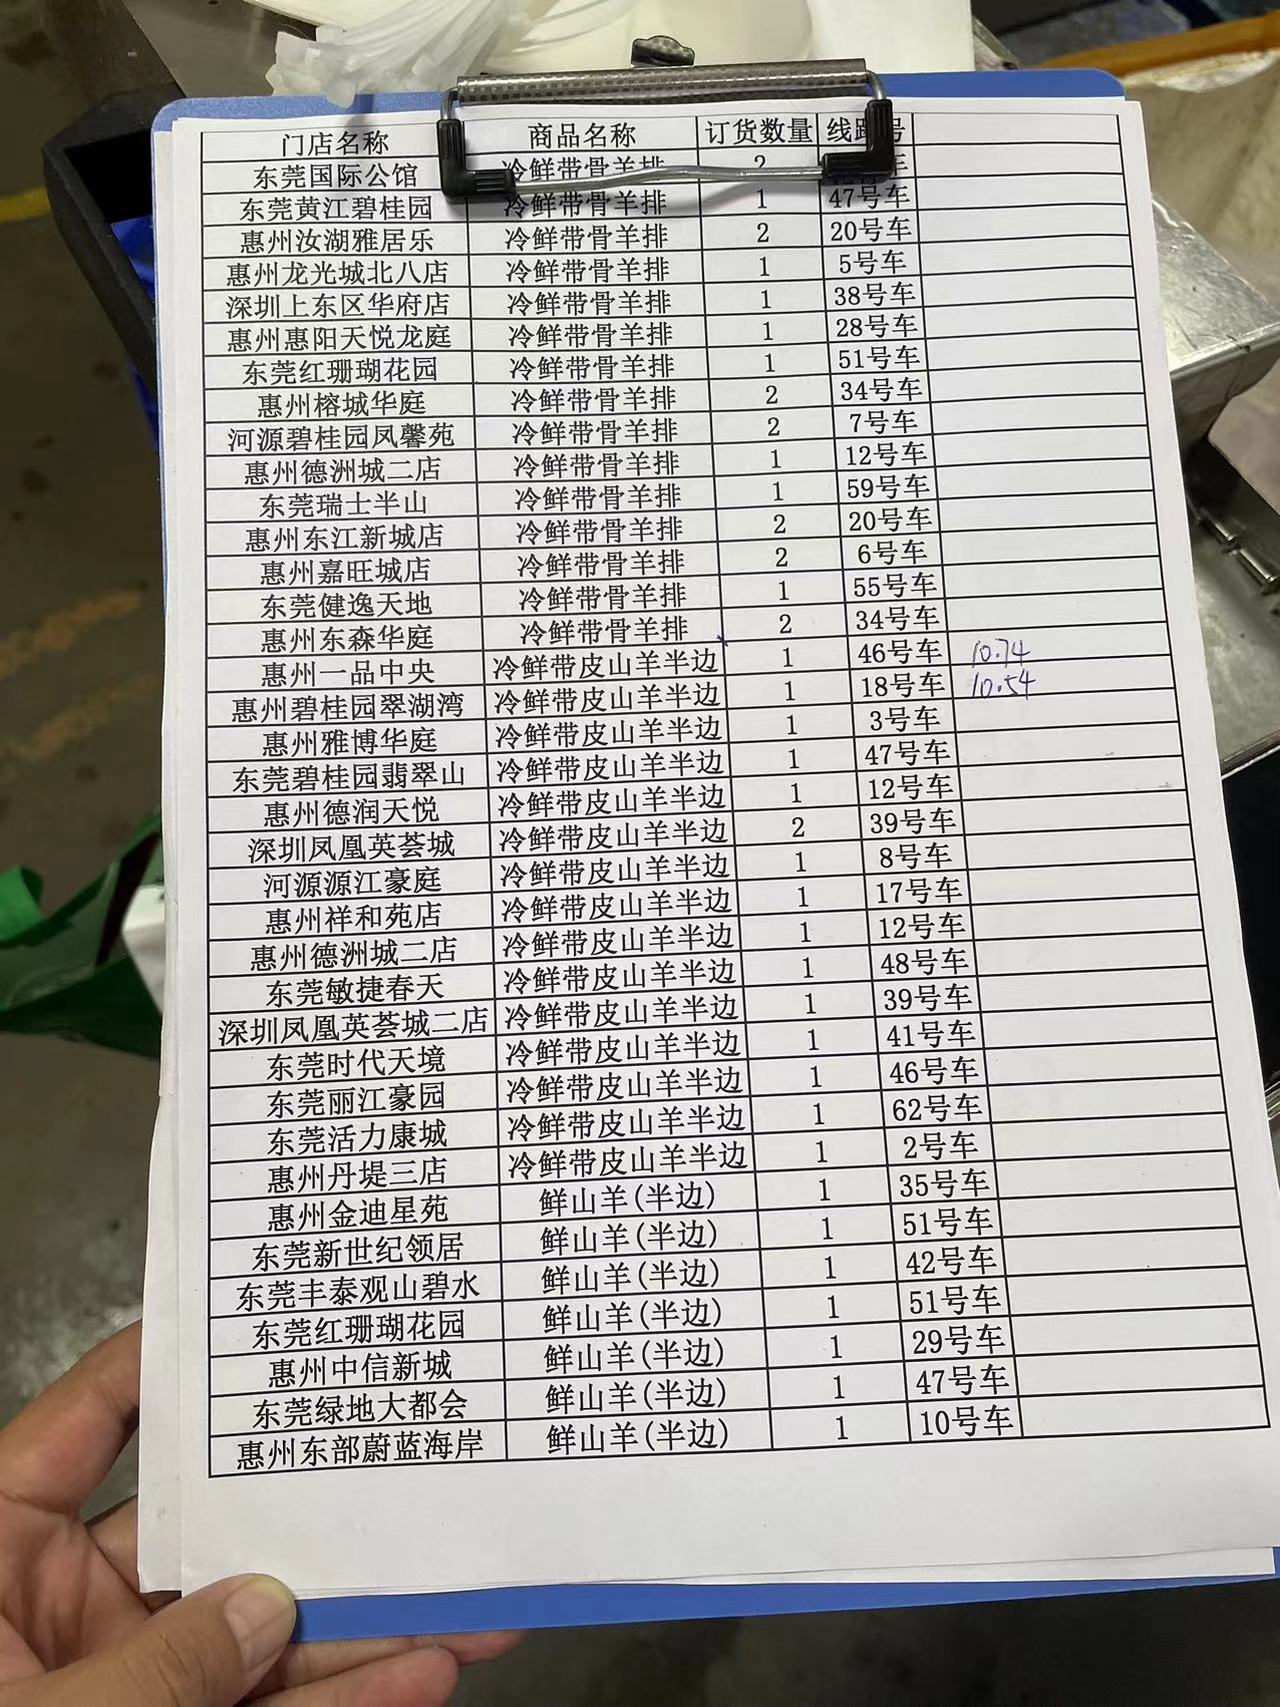 门店名称 商品名称 订货数量 线路号
东莞国际公馆 冷鲜带骨羊排 2 号车
东莞黄江碧桂园 冷鲜带骨羊排 1 47号车
惠州汝湖雅居乐 冷鲜带骨羊排 2 20号车
惠州龙光城北八店 冷鲜带骨羊排 1 5号车
深圳上东区华府店 冷鲜带骨羊排 1 38号车
惠州惠阳天悦龙庭 冷鲜带骨羊排 1 28号车
东莞红珊瑚花园 冷鲜带骨羊排 1 51号车
惠州榕城华庭 冷鲜带骨羊排 2 34号车
河源碧桂园凤馨苑 冷鲜带骨羊排 2 7号车
惠州德洲城二店 冷鲜带骨羊排 1 12号车
东莞瑞士半山 冷鲜带骨羊排 1 59号车
惠州东江新城店 冷鲜带骨羊排 2 20号车
惠州嘉旺城店 冷鲜带骨羊排 2 6号车
东莞健逸天地 冷鲜带骨羊排 1 55号车
惠州东森华庭 冷鲜带骨羊排 2 34号车
惠州一品中央 冷鲜带皮山羊半边 1 46号车 10.74
惠州碧桂园翠湖湾 冷鲜带皮山羊半边 1 18号车 10.54
惠州雅博华庭 冷鲜带皮山羊半边 1 3号车
东莞碧桂园翡翠山 冷鲜带皮山羊半边 1 47号车
惠州德润天悦 冷鲜带皮山羊半边 1 12号车
深圳凤凰英荟城 冷鲜带皮山羊半边 2 39号车
河源源江豪庭 冷鲜带皮山羊半边 1 8号车
惠州祥和苑店 冷鲜带皮山羊半边 1 17号车
惠州德洲城二店 冷鲜带皮山羊半边 1 12号车
东莞敏捷春天 冷鲜带皮山羊半边 1 48号车
深圳凤凰英荟城二店 冷鲜带皮山羊半边 1 39号车
东莞时代天境 冷鲜带皮山羊半边 1 41号车
东莞丽江豪园 冷鲜带皮山羊半边 1 46号车
东莞活力康城 冷鲜带皮山羊半边 1 62号车
惠州丹堤三店 冷鲜带皮山羊半边 1 2号车
惠州金迪星苑 鲜山羊(半边) 1 35号车
东莞新世纪领居 鲜山羊(半边) 1 51号车
东莞丰泰观山碧水 鲜山羊(半边) 1 42号车
东莞红珊瑚花园 鲜山羊(半边) 1 51号车
惠州中信新城 鲜山羊(半边) 1 29号车
东莞绿地大都会 鲜山羊(半边) 1 47号车
惠州东部蔚蓝海岸 鲜山羊(半边) 1 10号车